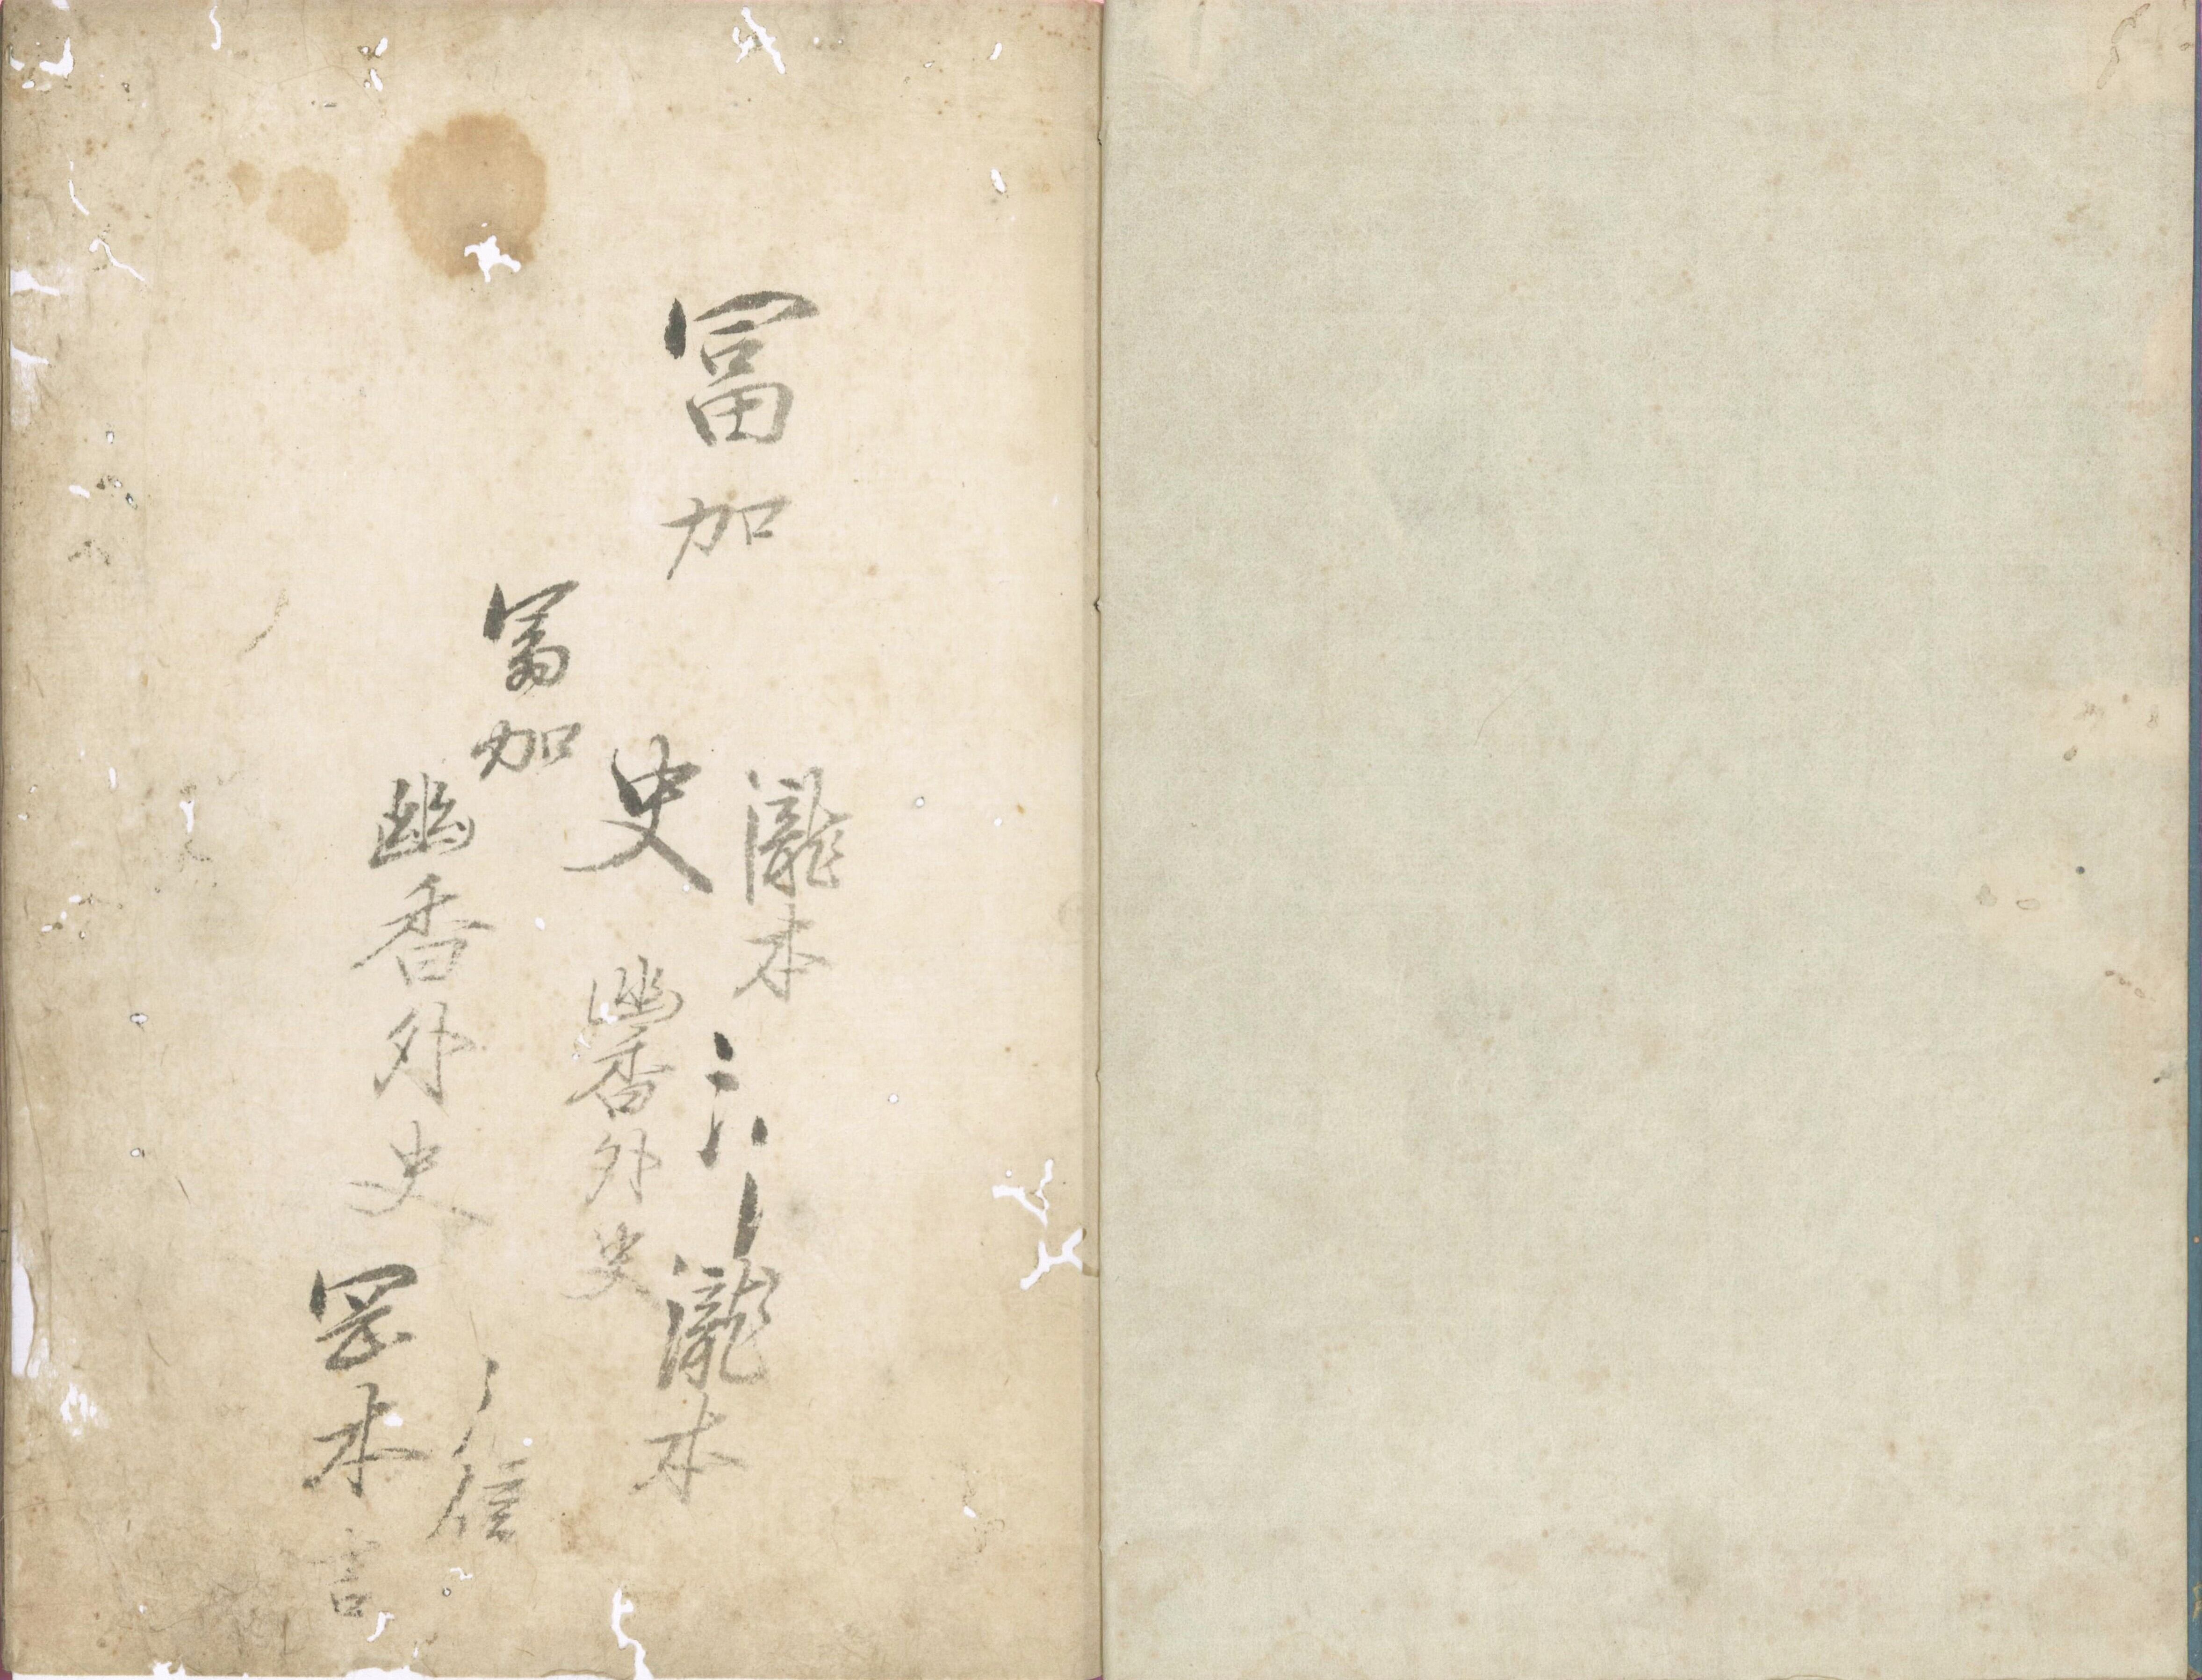 冨加
瀧本
瀧本
史
幽香外史
冨加
幽香外史
信
罡本
言